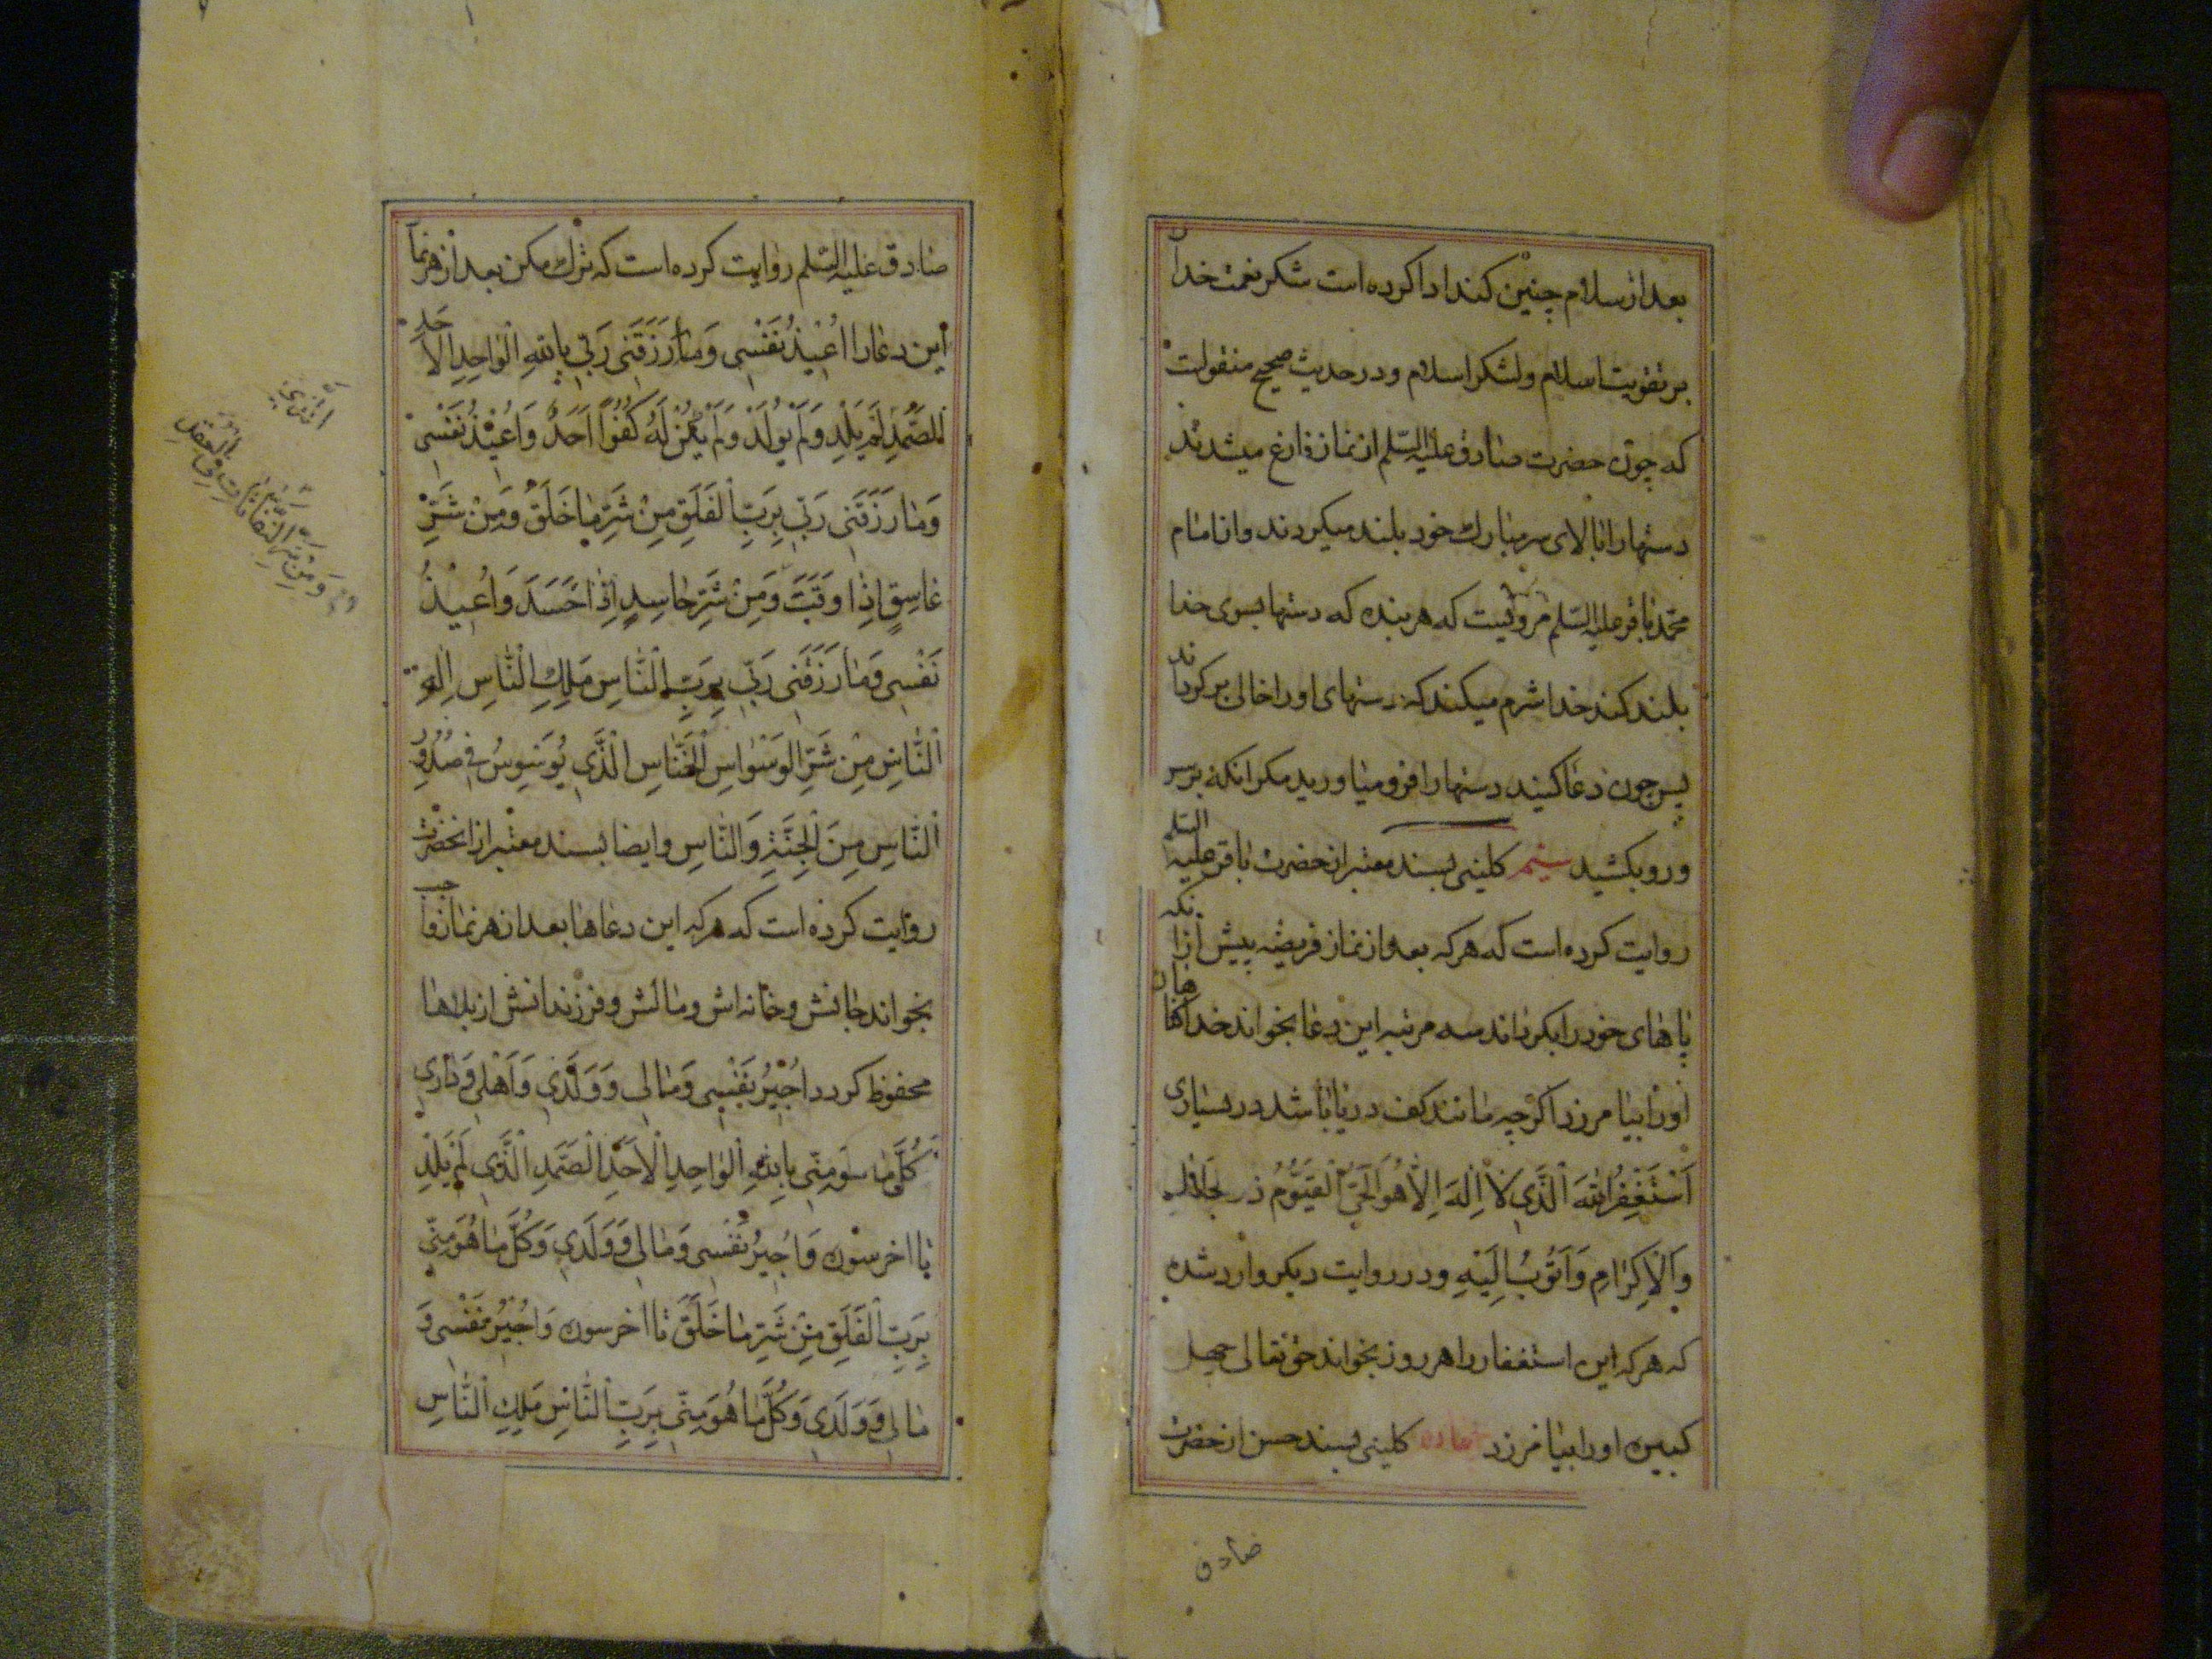 بعد از سلام چنین کند ادا کرده است شکر نعمت خدا
بر تقویت اسلام و لشکر اسلام و در حدیث صحیح منقولست
که چون حضرت صادق علیه السّلم از نماز فارغ میشدند
دستها را بالای سر مبارك خود بلند میکردند و از امام
محمّد باقر علیه السّلم مرویست که هر بنده که دستها بسوی خدا
بلند کند خدا شرم میکند که دستهای او را خالی برکرداند
پس چون دعا کنید دستها را فرو میاورید مکر انکه بر سر
و رو بکشید سیم کلینی بسند معتبر از حضرت باقر علیه السّلم
روایت کرده است که هر که بعد از نماز فریضه پیش ازانکه
پاهای خود را بکرداند سه مرتبه این دعا بخواند خدا کناهان
او را بیامرزد اکرچه مانند کف دریا باشد در بسیاری
اَسْتَغْفِرُ اللهَ الَّذی لا اِلٰهَ اِلّا هُوَ الْحَیُّ الْقَیُّومُ ذو الجَلالِ
وَالْاِکْرامِ وَاَتُوبُ اِلَیْهِ و در روایت دیکر وارد شده
که هر که این استغفار را هر روز بخواند حق تعالی چهل
کبیره او را بیامرزد کلینی بسند حسن از حضرت
صادق
صادق علیه السّلم روایت کرده است که ترك مکن بعد از هر نماز
این دعا را اُعیذُ نَفْسی وَما رَزَقَنی رَبّی بِاللهِ الْواحِدِ الْاَحَدِ
الصَّمَدِ لَمْ یَلِدْ وَلَمْ یُولَدْ وَلَمْ یَکُنْ لَهُ کُفُوًا اَحَدٌ وَاُعیْذُ نَفْسی
وَما رَزَقَنی رَبّی بِرَبِّ الْفَلَقِ مِنْ شَرِّ ما خَلَقَ وَمِنْ شَرِّ
غاسِقٍ اِذا وَقَبَ وَمِنْ شَرِّ حاسِدٍ اِذا حَسَدَ وَاُعیذُ
نَفْسی وَما رَزَقَنی رَبّی بِرَبِّ النّاسِ مَلِكِ النّاسِ اِلٰهِ
النّاسِ مِنْ شَرِّ الوَسْواسِ الْخَنّاسِ الَّذی یُوَسْوِسُ فی صُدُورِ
النّاسِ مِنَ الْجِنَّةِ وَالنّاسِ وایضا بسند معتبر از انحضرت
روایت کرده است که هر که این دعاها بعد از هر نماز واجب
بخواند جانش و خانه اش و مالش و فرزندانش از بلاها
محفوظ کردد اُجیْرُ نَفْسی وَمالی وَوَلَدی وَاَهْلی وَداری
وَکُلَّ ما هُوَ مِنّی بِاللهِ الْواحِدِ الْاَحَدِ الصَّمَدِ الَّذی لَمْ یَلِدْ
تا اخر سوره وَاُجیرُ نَفْسی وَمالی وَوَلَدی وَکُلَّ ما هُوَ مِنّی
بِرَبِّ الْفَلَقِ مِنْ شَرِّ ما خَلَقَ تا اخر سوره وَاُجیْرُ نَفْسی وَ
مالی وَوَلَدی وَکُلَّ ما هُوَ مِنّی بِرَبِّ النّاسِ مَلِكِ النّاسِ
وَمِنْ شَرِّ النَّفّاثاتِ فِی الْعُقَدِ